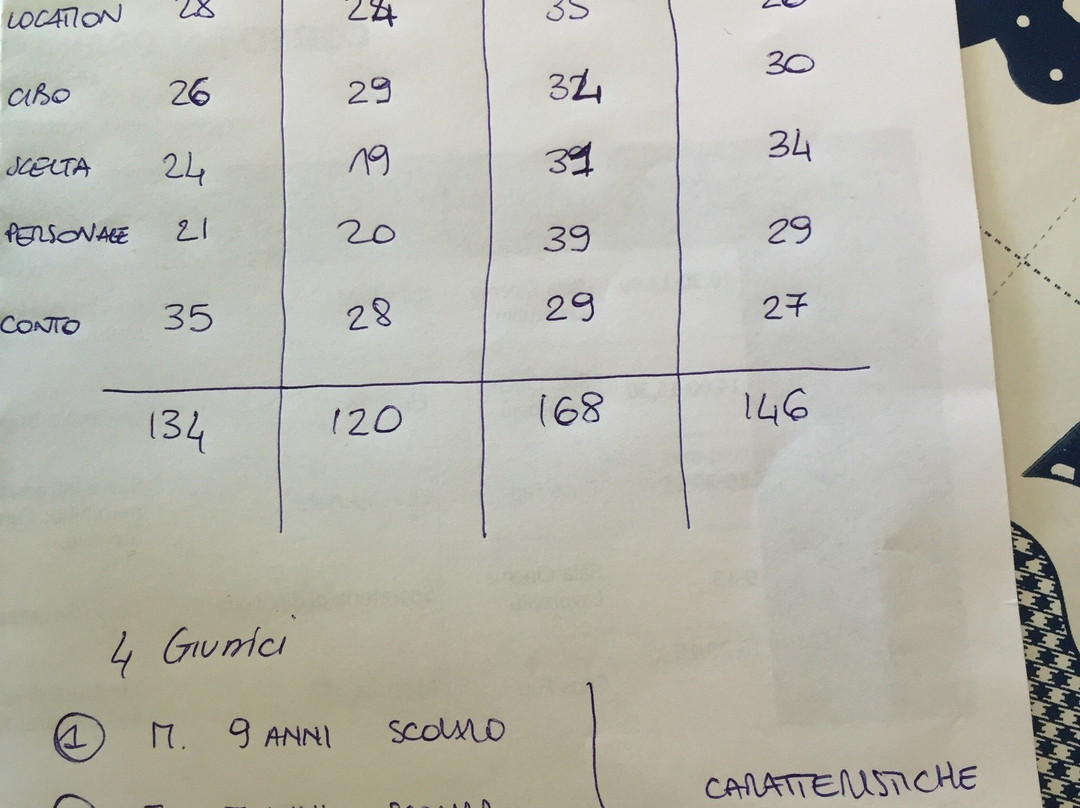 LOCATION 28 24 35 26
CIBO 26 29 34 30
SCELTA 24 19 31 34
PERSONALE 21 20 39 29
CONTO 35 28 29 27
134 120 168 146
4 GIUDICI
1 M. 9 ANNI SCOLARO
CARATTERISTICHE